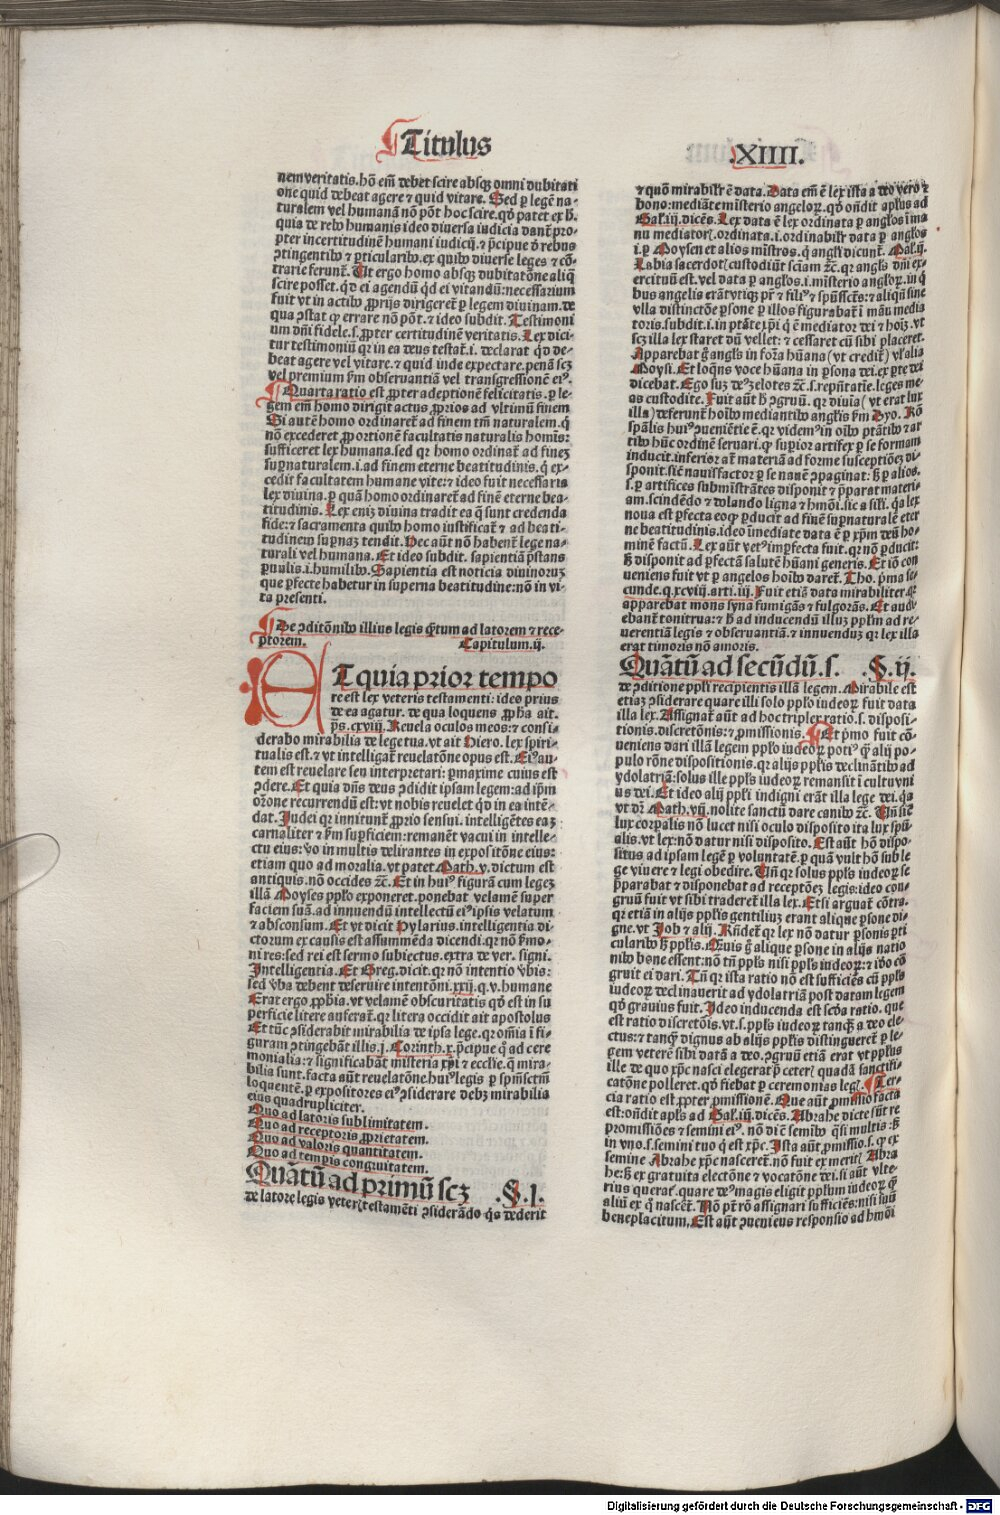 Titulus
.XIIII.
nem veritatis. hō em̄ debet scire absqꝫ omni dubitati
one quid debeat agere ⁊ quid vitare. Sed ꝑ legē na-
turalem vel humanā nō pōt hoc scire. qd̓ patet ex h̓.
quia de rebꝰ humanis ideo diuersa iudicia dant̄ pro-
pter incertitudinē humani iudicij. ⁊ p̄cipue d̓ rebus
ꝯtingentibꝰ ⁊ ꝑticularibꝰ. ex quibꝰ diuerse leges ⁊ cō-
trarie ferunt̄. Ut ergo homo absqꝫ dubitatōne aliq̄
scire posset. qd̓ ei agendū qd̓ ei vitandū: necessarium
fuit vt in actibꝰ ꝓprijs dirigeret̄ ꝑ legem diuinam. de
qua ꝯstat ꝙ errare nō pōt. ⁊ ideo subdit. Testimoni
um dn̄i fidele. s. ꝓpter certitudinē veritatis. Lex dici-
tur testimoniū qꝛ in ea deus testat̄. i. declarat qd̓ de-
beat agere vel vitare. ⁊ quid inde expectare. penā scꝫ
vel premium ẜm obseruantiā vel transgressionē eiꝰ.
Quarta ratio est ꝓpter adeptionē felicitatis. ꝑ le-
gem em̄ homo dirigit actus ꝓprios ad vltimū finem
Si autē homo ordinaret̄ ad finem tm̄ naturalem. q̇
nō excederet ꝓportionē facultatis naturalis homīs:
sufficeret lex humana. sed qꝛ homo ordinat̄ ad fineꝫ
suꝑnaturalem. i. ad finem eterne beatitudinis. q̇ ex-
cedit facultatem humane vite: ⁊ ideo fuit necessaria
lex diuina. ꝑ quā homo ordinaret̄ ad finē eterne bea-
titudinis. Lex enim diuina tradit ea q̄ sunt credenda
fide: ⁊ sacramenta quibꝰ homo iustificat̄ ⁊ ad beati-
tudinem suꝑnaꝫ tendit. Hec aūt nō habent̄ lege na-
turali vel humana. Et ideo subdit. sapientiā p̄stans
ꝑuulis. i. humilibꝰ. Sapientia est noticia diuinoruꝫ
que ꝑfecte habetur in superna beatitudine: nō in vi-
ta presenti.
De ꝯditōnibꝰ illius legis q̄tum ad latorem ⁊ rece-
ptorem. Capitulum. ij.
ET quia prior tempo
re est lex veteris testamenti: ideo prius
de ea agatur. de qua loquens ꝓpha ait.
ps. cxviij. Reuela oculos meos: ⁊ consi-
derabo mirabilia de lege tua. vt ait Hiero. lex spiri-
tualis est. ⁊ vt intelligat̄ reuelatōne opus est. Eiꝰ au-
tem est reuelare seu interpretari: p̄maxime cuius est
ꝯdere. Et quia dn̄s deus ꝯdidit ipsam legem: ad ip̄m
orōne recurrendū est: vt nobis reuelet qd̓ in ea intē-
dat. Iudei qꝛ innitunt̄ ꝓprio sensui. intelligētes eaꝫ
carnaliter ⁊ ẜm suꝑficiem: remanēt vacui in intelle-
ctu eius: vō in multis delirantes in expositōne eius:
etiam quo ad moralia. vt patet Math. v. dictum est
antiquis. nō occides ⁊c. Et in huiꝰ figurā cum legeꝫ
illā Moyses ppl̓o exponeret. ponebat velamē super
faciem suā. ad innuendū intellectū eiꝰ ipsis velatum
⁊ absconsum. Et vt dicit Hylarius. intelligentia di-
ctorum ex causis est assummēda dicendi. qꝛ nō ẜmo-
ni res: sed rei est sermo subiectus. extra de ver. signi.
Intelligentia. Et Greg. dicit. qꝛ nō intentio v̓bis:
sed v̓ba debent deseruire intentōni. xxij. q. v. humane
Erat ergo ꝓph̓ia. vt velamē obscuritatis qd̓ est in su
perficie litere auferat̄. qꝛ litera occidit ait apostolus
Et tūc ꝯsiderabit mirabilia de ipsa lege. qꝛ om̄ia ī fi-
guram ꝯtingebāt illis. j. Corinth. x. p̄cipue q̄ ad cere
monialia: ⁊ significabāt misteria xp̄i ⁊ eccl̓ie. q̄ mira-
bilia sunt. facta aūt reuelatōne huiꝰ legis ꝑ sp̄msct̄m
loquentē. ꝑ expositores eiꝰ ꝯsiderare debꝫ mirabilia
eius quadrupliciter.
Quo ad latoris sublimitatem.
Quo ad receptoris ꝓprietatem.
Quo ad valoris quantitatem.
Quo ad temꝑis congruitatem.
Quātū ad primū scꝫ .§. I.
de latore legis veterꝭ testamēti ꝯsiderādo q̓s dederit
⁊ quō mirabilr̄ ē data. Data em̄ ē lex ista a deo vero ⁊
bono: mediāte misterio angeloꝝ. qd̓ ondit apl̓us ad
Gal. iij. dicēs. Lex data ē lex ordinata ꝑ angl̓os ī ma
nu mediatorꝭ. ordinata. i. ordinabilr̄ data ꝑ angl̓os
i. ꝑ Moysen et alios mīstros. q̇ angl̓i dicunt̄. Mal. ij.
Labia sacerdotꝭ custodiūt sciam ⁊c. qꝛ angl̓s dn̄i ex-
ercituū est. vel data ꝑ angl̓os. i. misterio angl̓oꝝ. in q̇
bus angelis erāt vtiqꝫ pr̄ ⁊ filiꝰ ⁊ spūssct̄s: ⁊ aliqn̄ sine
vlla distinctōe ꝑsone ꝑ illos figurabat̄ ī manu media
toris. subdit. i. in ptāte xp̄i q̇ ē mediator dei ⁊ hoīꝫ. vt
scꝫ illa lex staret dū vellet: ⁊ cessaret cū sibi placeret.
Apparebat g̊ angl̓s in forma hūana (vt credit̄) vl̓alia
Moysi. Et loqn̄s voce hūana in ꝑsona dei. ex ꝑte dei
dicebat. Ego sum deꝰ zelotes ⁊c. s. reputatiē. leges me-
as custodite. Fuit aūt h̓ ꝯgruū. qꝛ diuia (vt erat lux
illa) deferunt̄ hoībꝰ mediantibꝰ angl̓is ẜm Dyo. Rō
spālis huiꝰ ꝯuenientie ē. qꝛ videmꝰ in oībꝰ ptātibꝰ ⁊ ar
tibꝰ hūc ordinē seruari. ꝙ suꝑior artifex ꝑ se formam
inducit. inferior aūt materiā ad forme susceptiōeꝫ di-
sponit. sic̄ nauisfactor ꝑ se nauē ꝯpaginat: ꝫ ꝑ alios.
s. ꝑ artifices subministrātes disponit ⁊ p̄parat materi-
am. scindēdo ⁊ dolando ligna ⁊ hm̄oi. sic a sil̓i. q̇a lex
noua est ꝑfecta eo ꝙ ꝑducit ad finē suꝑnaturalē eter
ne beatitudinis. ideo īmediate data ē ꝑ xp̄m deū ho-
minē factū. Lex aūt vetꝰ imꝑfecta fuit. qꝛ nō ꝑducit:
ꝫ disponit ad ꝑfectā salutē hūani generis. Et iō con
ueniens fuit vt ꝑ angelos hoībꝰ daret̄. Tho. p̓ma se-
cunde. q. xcviij. arti. iij. Fuit etiā data mirabiliter. qꝛ
apparebat mons syna fumigās ⁊ fulgorās. Et audi-
ebant̄ tonitrua: ⁊ h̓ ad inducendū illuꝫ ppl̓m ad re-
uerentiā legis ⁊ obseruantiā. ⁊ innuenduꝫ qꝛ lex illa
erat timoris nō amoris.
Quātū ad secūdū. s. .§. ij.
de ꝯditione ppl̓i recipientis illā legem. Mirabile est
etiaꝫ ꝯsiderare quare illi solo ppl̓o iudeoꝝ fuit data
illa lex. Assignat̄ aūt ad hoc triplex ratio. s. disposi-
tionis. discretōnis: ⁊ ꝓmissionis. Et p̓mo fuit cō-
ueniens dari illā legem ppl̓o iudeoꝝ potiꝰ q̄ alij po-
pulo rōne dispositionis. qꝛ alijs ppl̓is declinātibꝰ ad
ydolatriā: solus ille ppl̓s iudeoꝝ remansit ī cultu vni
us dei. Et ideo alij ppl̓i indigni erāt illa lege dei. q̇a
vt dr̄ Math. vij. nolite sanctū dare canibꝰ ⁊c. Un̄ sic̄
lux corꝑalis nō lucet nisi oculo disposito ita lux spūi-
alis. vt lex: nō datur nisi disposito. Est aūt hō dispo-
situs ad ipsam legē ꝑ voluntatē. ꝑ quā vult hō sub le
ge viuere ⁊ legi obedire. Un̄ qꝛ solus ppl̓s iudeoꝝ se
p̄parabat ⁊ disponebat ad receptōeꝫ legis: ideo con-
gruū fuit vt sibi traderet̄ illa lex. Et si arguat̄ cōtra.
qꝛ etiā in alijs ppl̓is gentiliuꝫ erant alique ꝑsone di-
gne. vt Job ⁊ alij. Rn̄det̄ qꝛ lex nō datur ꝑsonis ꝑti
cularibꝰ ꝫ ppl̓is. Quis g̊ alique ꝑsone in alijs natio
nibꝰ bone essent: nō tn̄ ppl̓s nisi ppl̓s iudeoꝝ: ⁊ ibꝰ cō
gruit ei dari. Tn̄ qꝛ ista ratio nō est sufficiēs cū ppl̓s
iudeoꝝ declinauerit ad ydolatriā post datam legem
qd̓ grauius fuit. Ideo inducenda est scd̓a ratio. que
est ratio discretōis. vt. s. ppl̓s iudeoꝝ tanqꝫ a deo ele-
ctus: ⁊ tanqꝫ dignus ab alijs ppl̓is distingueret̄ ꝑ le-
gem veterē sibi datā a deo. ꝯgruū etiā erat vt ppl̓us
ille de quo xp̄c nasci elegerat p̄ ceterꝭ quadā sanctifi-
catōne polleret. qd̓ fiebat ꝑ ceremonias legꝭ. Ter-
cia ratio est ꝓpter ꝓmissionē. Que aūt ꝓmissio facta
est: ondit apl̓s ad Gal. iij. dicēs. Abrahe dicte sūt re
promissiōes ⁊ semini eiꝰ. nō dic̄ semībꝰ q̄si multis: ꝫ
in vno. s. semini tuo q̇ est xp̄c. Ista aūt ꝓmissio. s. ꝙ ex
semine Abrahe xp̄c nasceret̄. nō fuit ex meritꝭ Abra
he: ꝫ ex gratuita electōne ⁊ vocatōne dei. si aūt vlte-
rius querat̄. quare deꝰ magis eligit ppl̓um iudeoꝝ q̄
aliū ex q̊ nascet̄. Nō pt̄ rō assignari sufficiēs: nisi suū
beneplacitum. Est aūt ꝯueniens responsio ad hm̄oi
Digitalisierung gefördert durch die Deutsche Forschungsgemeinschaft - DFG